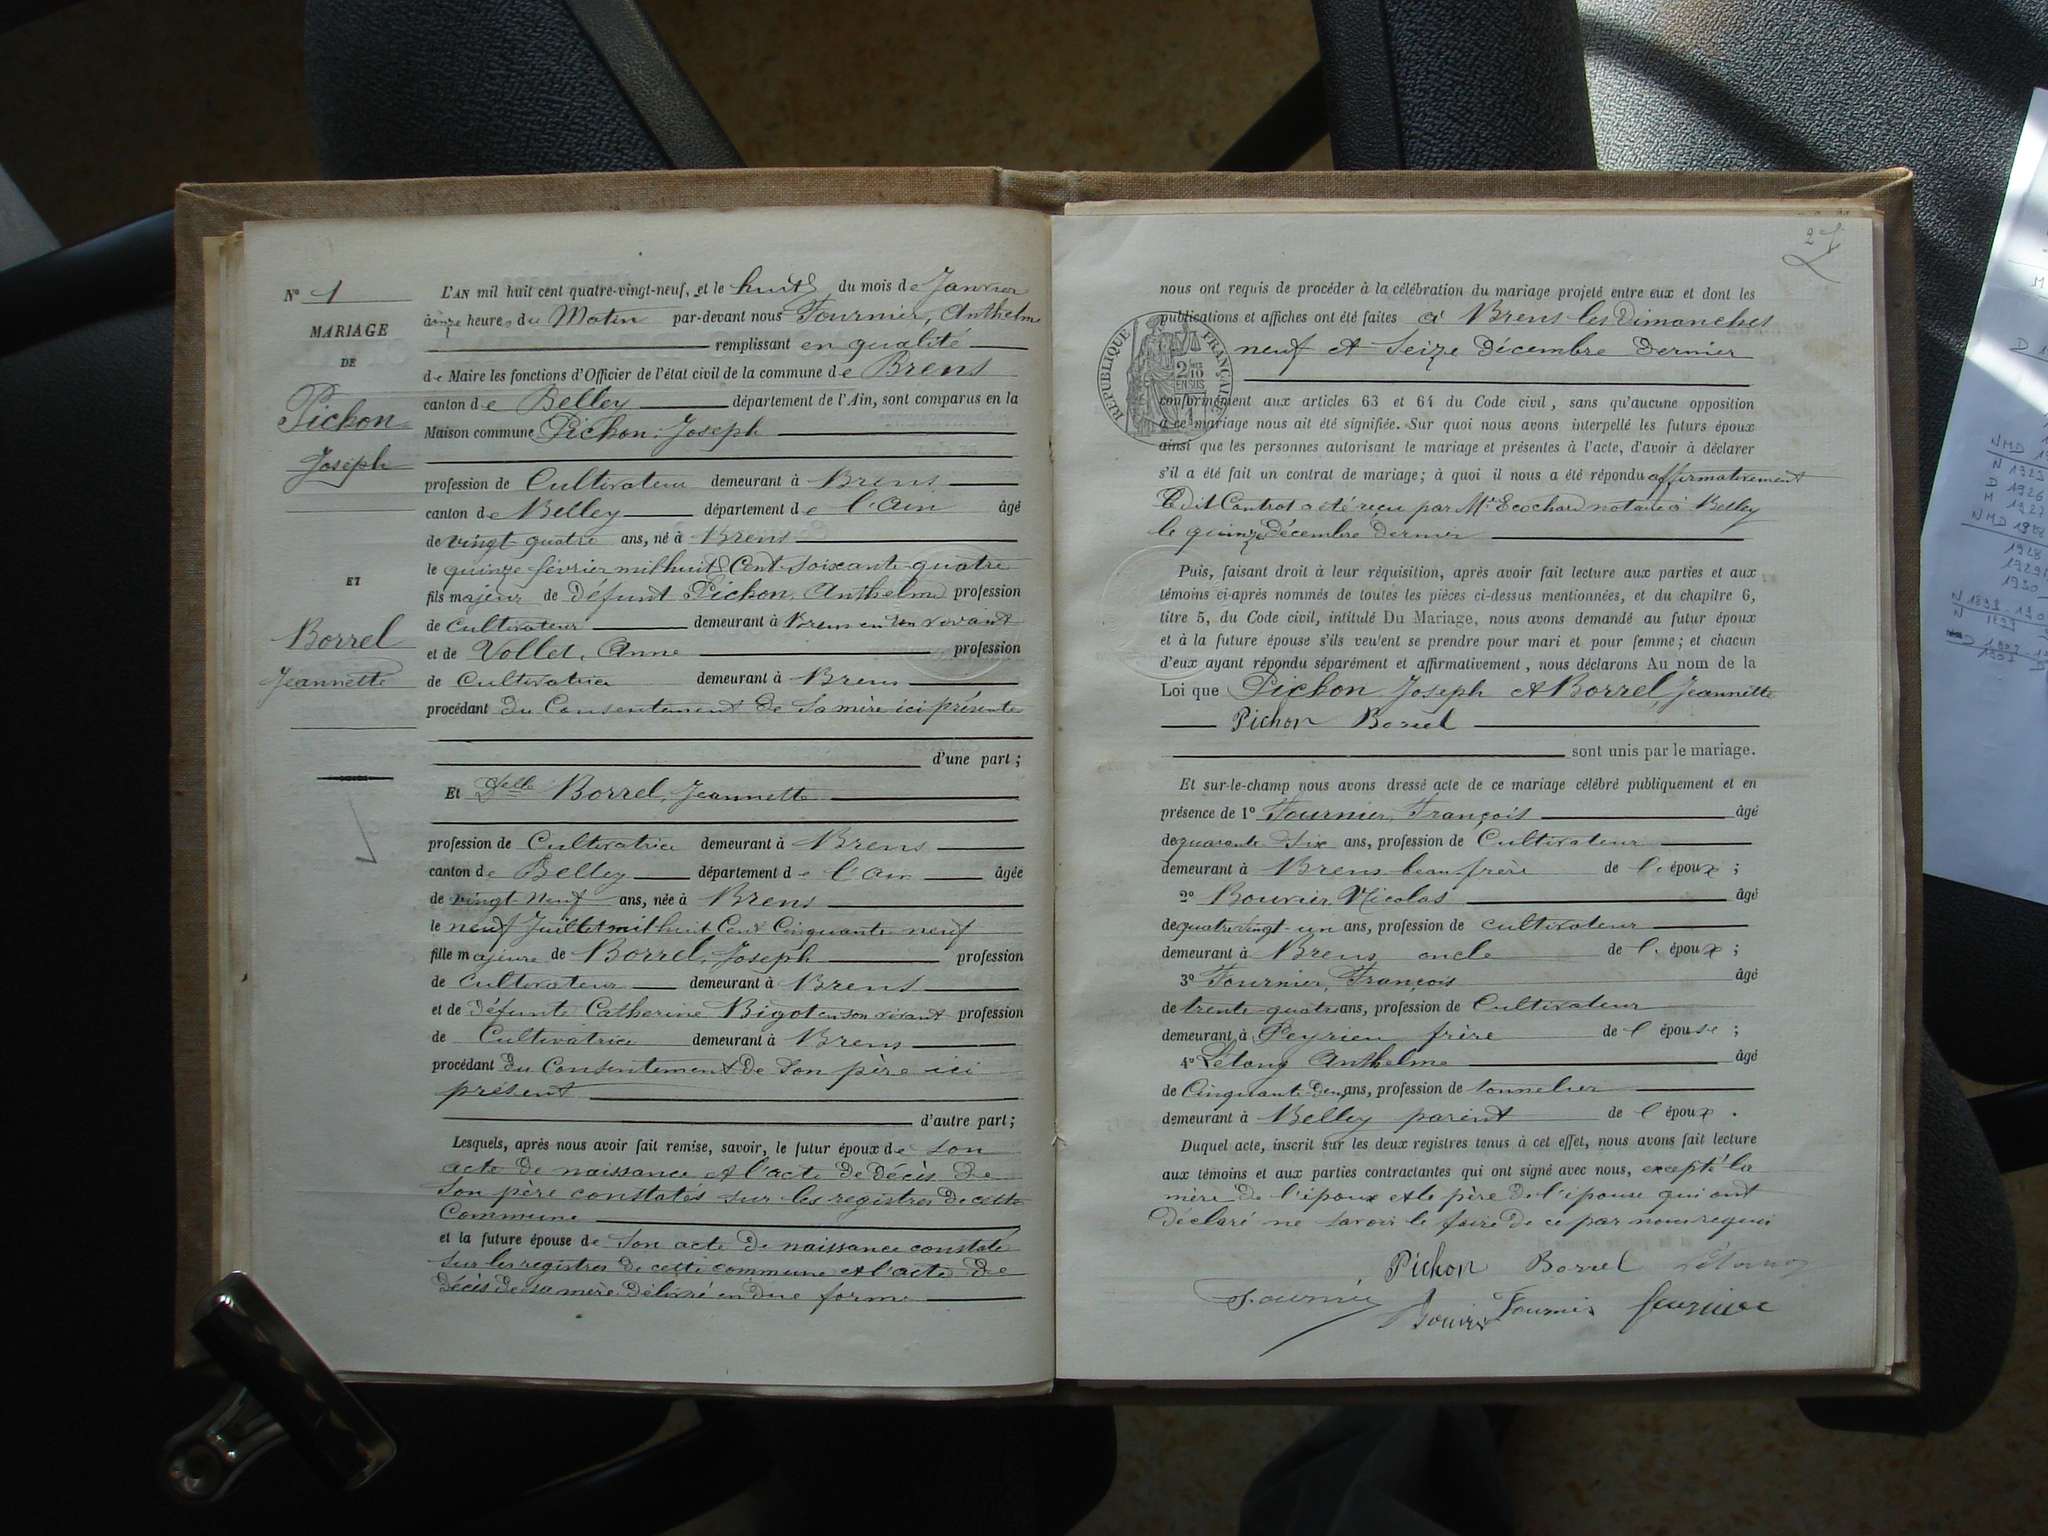 N° 1
MARIAGE
DE
Pichon
Joseph
ET
Borrel
Jeannette
L'AN mil huit cent quatre-vingt-neuf, et le huit du mois de Janvier
à onze heures du Matin par-devant nous Fournier, Anthelme
remplissant en qualité
de Maire les fonctions d'Officier de l'état civil de la commune de Brens
canton de Belley département de l'Ain, sont comparus en la
Maison commune Pichon, Joseph
profession de Cultivateur demeurant à Brens
canton de Belley département de l'Ain âgé
de vingt quatre ans, né à Brens
le quinze février mil huit Cent soixante quatre
fils majeur de Défunt Pichon, Anthelme profession
de Cultivateur demeurant à Brens en son vivant
et de Vollet, Anne profession
de Cultivatrice demeurant à Brens
procédant du Consentement de sa mère ici présente
d'une part ;
Et Delle Borrel, Jeannette
profession de Cultivatrice demeurant à Brens
canton de Belley département de l'ain âgée
de vingt neuf ans, née à Brens
le neuf Juillet mil huit Cent Cinquante neuf
fille majeure de Borrel, Joseph profession
de Cultivateur demeurant à Brens
et de Défunte Catherine Bigot en son vivant profession
de Cultivatrice demeurant à Brens
procédant du Consentement de son père ici
présent
d'autre part ;
Lesquels, après nous avoir fait remise, savoir, le futur époux de son
acte de naissance et l'acte de décès de
son père constatés sur les registres de cette
Commune
et la future épouse de son acte de naissance constaté
sur les registres de cette commune et l'acte de
décès de sa mère délivré en due forme
2
nous ont requis de procéder à la célébration du mariage projeté entre eux et dont les
publications et affiches ont été faites à Brens les Dimanches
neuf et seize Décembre dernier
RÉPUBLIQUE FRANÇAISE
2/10 EN SUS
conformément aux articles 63 et 64 du Code civil, sans qu'aucune opposition
à ce mariage nous ait été signifiée. Sur quoi nous avons interpellé les futurs époux
ainsi que les personnes autorisant le mariage et présentes à l'acte, d'avoir à déclarer
s'il a été fait un contrat de mariage ; à quoi il nous a été répondu affirmativement
Le dit Contrat a été reçu par Me Ecochard notaire à Belley
le quinze Décembre dernier
Puis, faisant droit à leur réquisition, après avoir fait lecture aux parties et aux
témoins ci-après nommés de toutes les pièces ci-dessus mentionnées, et du chapitre 6,
titre 5, du Code civil, intitulé Du Mariage, nous avons demandé au futur époux
et à la future épouse s'ils veulent se prendre pour mari et pour femme ; et chacun
d'eux ayant répondu séparément et affirmativement, nous déclarons Au nom de la
Loi que Pichon, Joseph et Borrel, Jeannette
Pichon Borrel
sont unis par le mariage.
Et sur-le-champ nous avons dressé acte de ce mariage célébré publiquement et en
présence de 1° Fournier, François âgé
de quarante six ans, profession de Cultivateur
demeurant à Brens beau frère de l'époux ;
2° Bouvier Nicolas âgé
de quatre vingt-un ans, profession de cultivateur
demeurant à Brens oncle de l'époux ;
3° Fournier, François âgé
de trente quatre ans, profession de Cultivateur
demeurant à Peyrieu frère de l'épouse ;
4° Létang Anthelme âgé
de Cinquante deux ans, profession de tonnelier
demeurant à Belley parent de l'époux.
Duquel acte, inscrit sur les deux registres tenus à cet effet, nous avons fait lecture
aux témoins et aux parties contractantes qui ont signé avec nous, excepté la
mère de l'époux et le père de l'épouse qui ont
déclaré ne savoir le faire de ce par nous requis
Pichon Borrel Létang
Fournier Bouvier Fournier fournier
NMD
N 1923
D 1926
M 1927
NMD 1908
1928
1929
1930